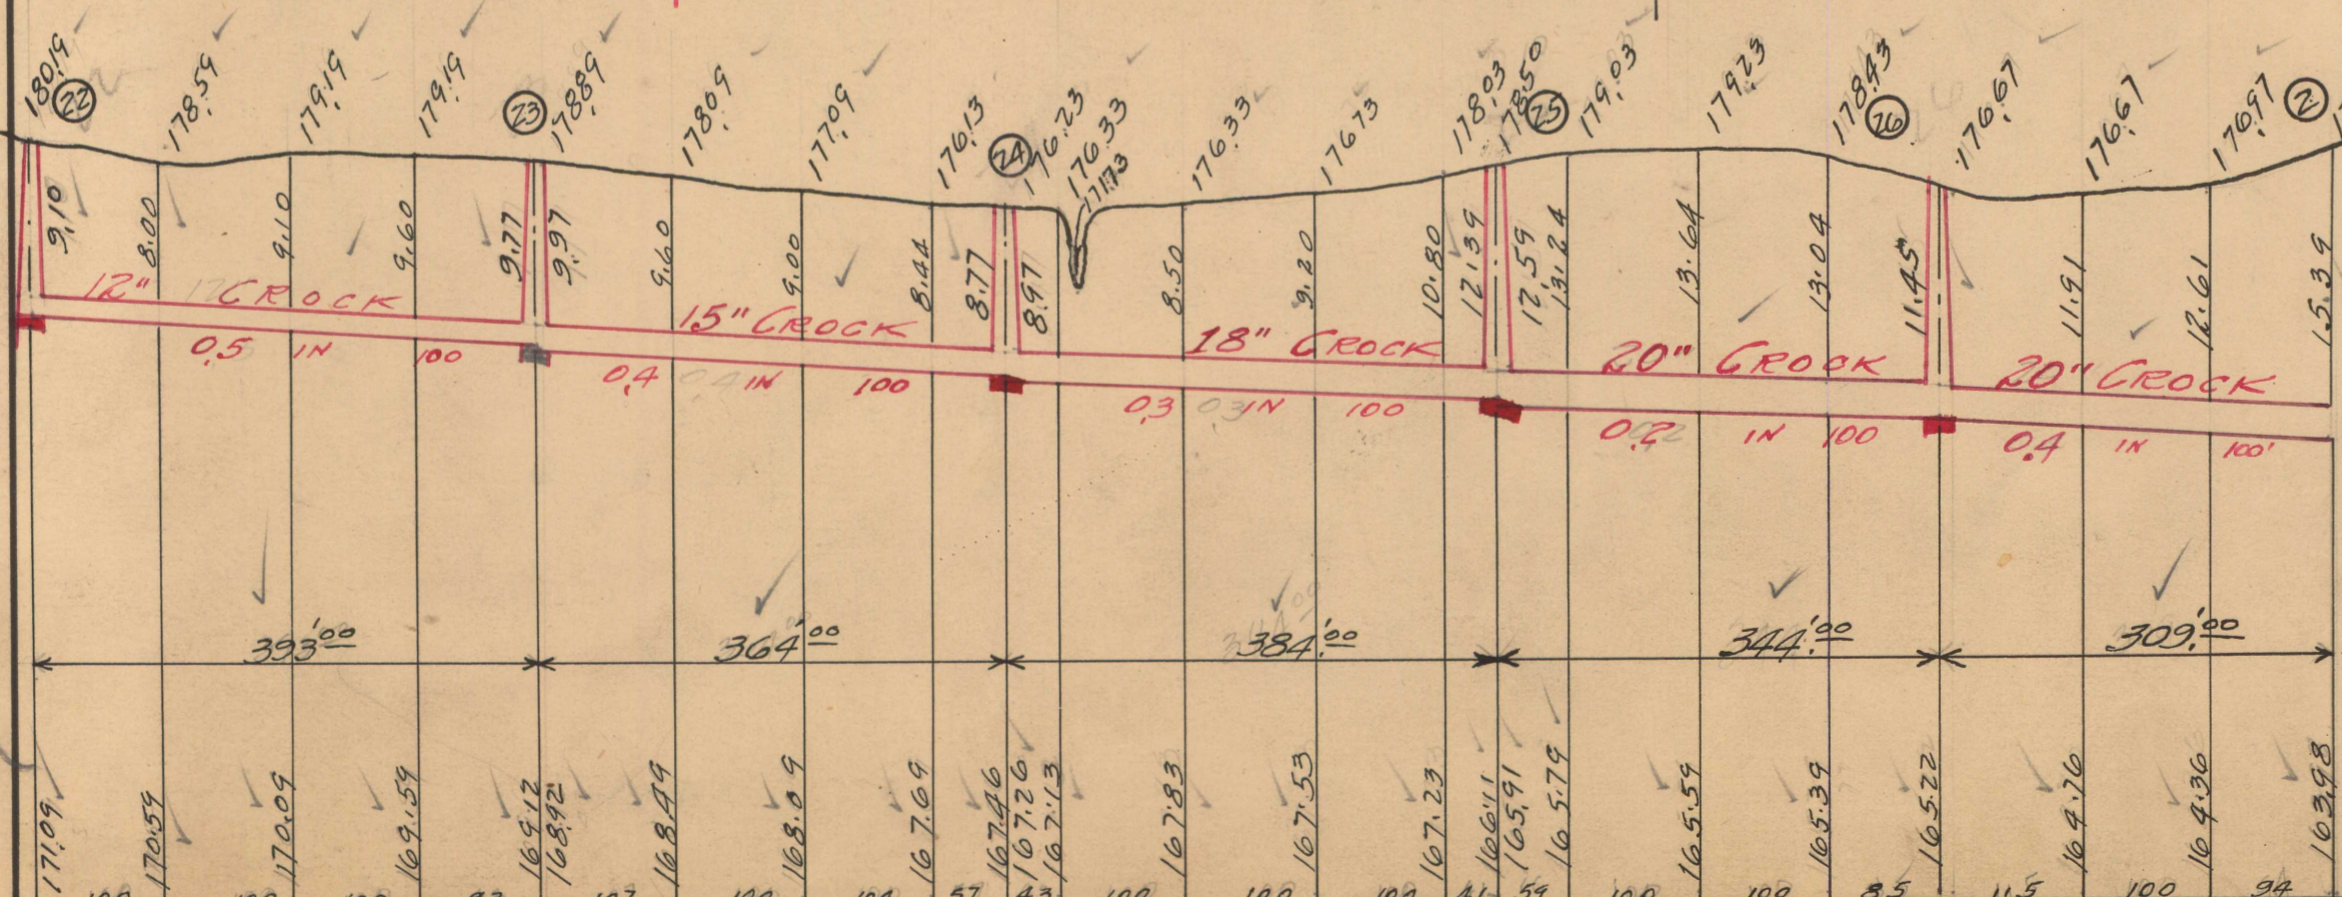 180.19
22
178.59
179.19
179.19
23
178.89
178.09
177.09
176.13
24
176.23
176.33
171.73
176.33
176.73
178.03
178.50
25
179.03
179.23
178.43
26
176.67
176.67
176.97
2
9.10
8.00
9.10
9.60
9.77
9.97
9.60
9.00
8.44
8.77
8.97
8.50
9.20
10.80
12.39
12.59
13.24
13.64
13.04
11.45
11.91
12.61
15.39
12" CROCK
15" CROCK
18" CROCK
20" CROCK
20" CROCK
0.5 IN 100
0.4 IN 100
0.3 IN 100
0.2 IN 100
0.4 IN 100'
393'00
364'00
384'00
344'00
309'00
171.09
170.59
170.09
169.59
169.12
168.92
168.49
168.09
167.69
167.46
167.26
167.13
167.83
167.53
167.23
166.11
165.91
165.79
165.59
165.39
165.22
164.76
164.36
163.98
100
100
100
93
107
100
100
57
43
100
100
100
41
59
100
100
85
115
100
94